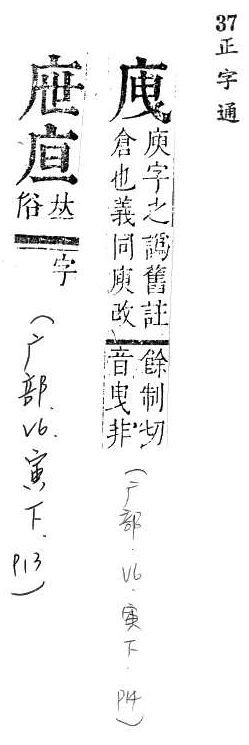 37正字通
庾字之譌舊註餘制切
倉也義同庾改音曳非
(广部.V6.寅下.P14)
𠀤
俗
字
(广部.V6.寅下.P13)